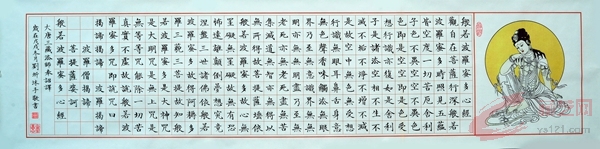 般若波羅密多心經
觀自在菩薩行深般若
波羅密多時照見五蘊
皆空度一切苦厄舍利
子色不異空空不異色
色即是空空即是色受
想行識亦復如是舍利
子是諸法空相不生不
滅不垢不淨不增不減
是故空中無色無受想
行識無眼耳鼻舌身意
無色聲香味觸法無眼
界乃至無意識界無無
明亦無無明盡乃至無
老死亦無老死盡無苦
集滅道無智亦無得以
無所得故菩提薩埵依
般若波羅密多故心無
罣礙無罣礙故無有恐
怖遠離顛倒夢想究竟
涅槃三世諸佛依般若
波羅密多故得阿耨多
羅三藐三菩提故知般
若波羅密多是大神咒
是大明咒是無上咒是
無等等咒能除一切苦
真實不虛故說般若波
羅密多咒即說咒曰
揭諦揭諦波羅揭諦
波羅僧揭諦
菩提薩婆訶
般若波羅密多心經
大唐三藏法師奉詔譯
歲在戊戌冬月劉沐手敬書
ya121.com